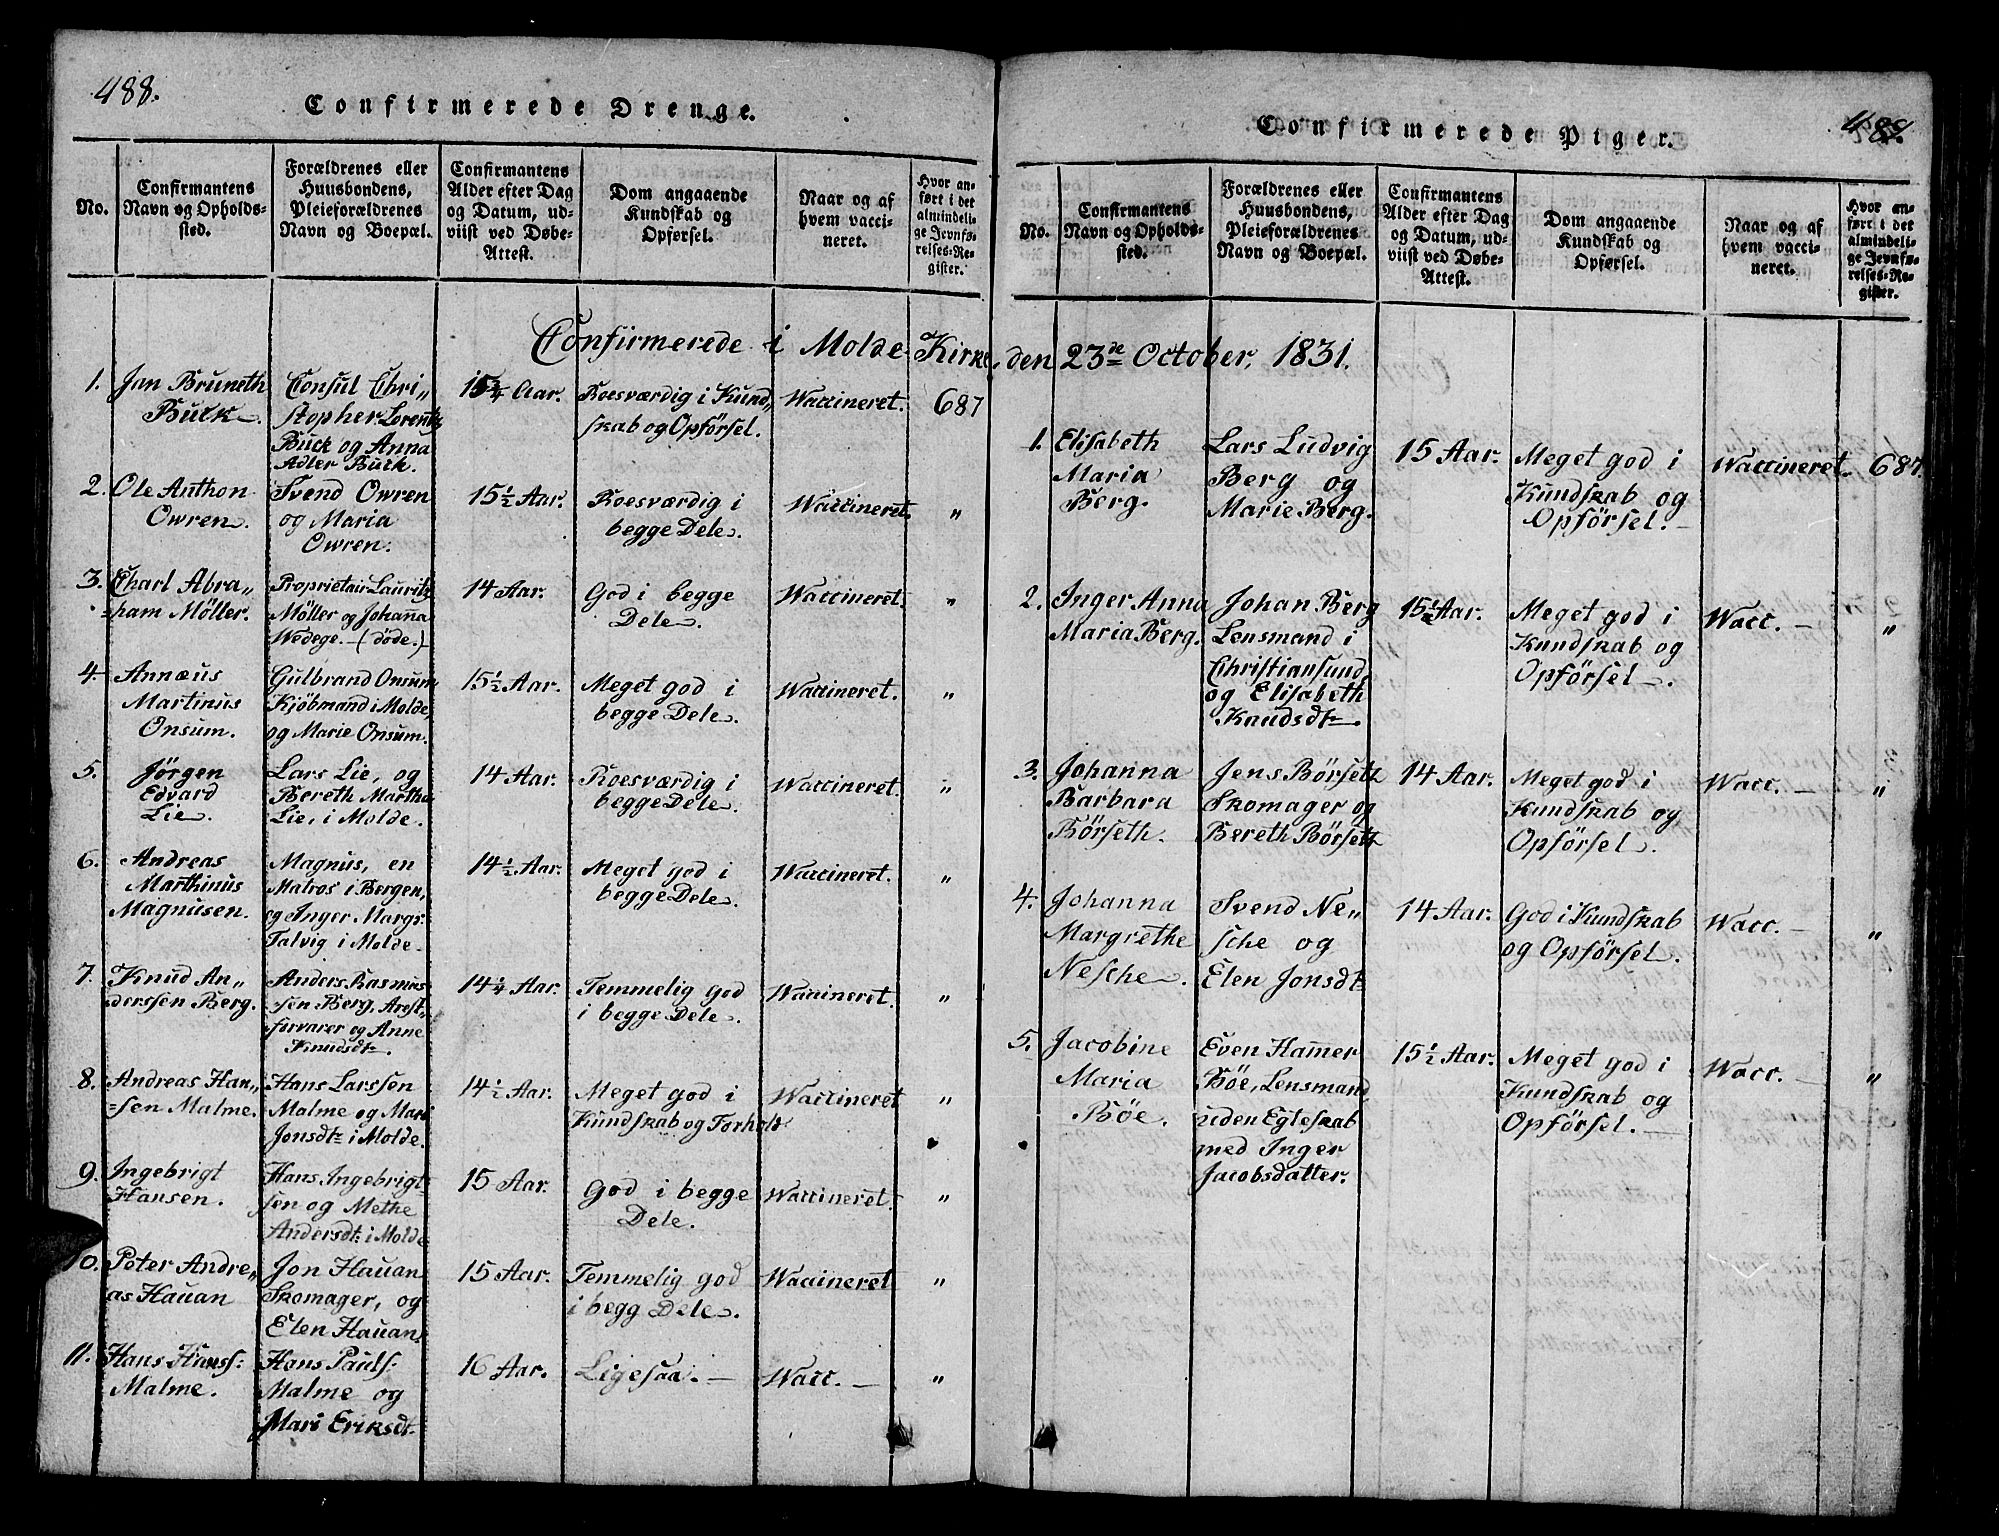 488.
Confirmerede Drenge.
No.
Confirmantens
Navn og Opholds-
sted.
Forældrenes eller
Huusbondens,
Pleieforældrenes
Navn og Boepæl.
Confirmantens
Alder efter Dag
og Datum, ud-
viist ved Døbe-
Attest.
Dom angaaende
Kundskab og
Opførsel.
Naar og af
hvem vacci-
neret.
Hvor an-
ført i det
almindeli-
ge Jevnfø-
relses-Re-
gister.
Confirmerede i Molde Kirke, den 23de October, 1831.
1.
Jan Bruneth
Buck.
Consul Chri„
stopher Lorentz
Buck og Anna
Adler Buck.
15¾ Aar.
Roesværdig i Kund„
skab og Opførsel.
Waccineret.
687
2.
Ole Anthon
Owren.
Svend Owren
og Maria
Owren.
15½ Aar.
Roesværdig i
begge Dele.
Waccineret.
„
3.
Charl Abra„
=ham Möller.
Proprietair Lauritz
Möller og Johanna
Wedege.-(døde.)
14 Aar.
God i begge
Dele.
Waccineret.
„
4.
Annæus
Martinus
Onsum.
Gulbrand Onsum
Kjöbmand i Molde,
og Marie Onsum.
15½ Aar.
Meget god i
begge Dele.
Waccineret.
„
5.
Jörgen
Edvard
Lie.
Lars Lie, og
Bereth Martha
Lie, i Molde.
14 Aar.
Roesværdig i
begge Dele.
Waccineret.
„
6.
Andreas
Marthinus
Magnusen.
Magnus, en
Matros i Bergen,
og Inger Margs:
Talvig i Molde.
14½ Aar.
Meget god i
begge Dele.
Waccineret.
„
7.
Knud An„
derssen Berg.
Anders Rasmus
=sen Berg, Arest„
forvarer og Anne
Knudsdt.
14¼ Aar.
Temmelig god
i begge Dele.
Waccineret.
„
8.
Andreas Han„
=sen Malme.
Hans Larssen
Malme og Mari
Jonsdt: i Molde.
14½ Aar.
Meget god i
Kundskab og Forhold
Waccineret
„
9.
Ingebrigt
Hansen.
Hans Ingebrigt„
sen og Methe
Andersdt: i Molde
15 Aar.
God i begge
Dele.
Waccineret.
„
10.
Peter Andre„
as Hauan
Jon Hauan
Skomager, og
Elen Hauan.
15 Aar.
Temmelig god
i begg Dele.
Waccineret
„
11.
Hans Hanss:
Malme.
Hans Pauls:
Malme og
Mari Eriksdt.
16 Aar.
Ligesaa.-
Wacc.-
„
489.
Confirmerede Piger.
No.
Confirmantens
Navn og Opholds-
sted.
Forældrenes eller
Huusbondens,
Pleieforældrenes
Navn og Boepæl.
Confirmantens
Alder efter Dag
og Datum, ud-
viist ved Døbe-
Attest.
Dom angaaende
Kundskab og
Opførsel.
Naar og af
hvem vacci-
neret.
Hvor an-
ført i det
almindeli-
ge Jevnfø-
relses-Re-
gister.
1.
Elisabeth
Maria
Berg.
Lars Ludvig
Berg og
Marie Berg.
15 Aar.
Meget god i
Kundskab og
Opförsel.-
Waccineret.
687.
2.
Inger Anna
Maria Berg.
Johan Berg
Lensmand i
Christiansund,
og Elisabeth
Knudsdt
15½ Aar.
Meget god i
Kundskab og
Opförsel.
Wacc.-
„
3.
Johanna
Barbara
Börseth.
Jens Börseth
Skomager og
Bereth Börseth
14 Aar.
Meget god i
Kundskab og
Opförsel.
Wacc.-
„
4.
Johanna
Margrethe
Nesche.
Svend Ne„
sche og
Elen Jonsdt
14 Aar.
God i Kundskab
og Opförsel.
Wacc.-
„
5.
Jacobine
Maria
Böe.
Even Hamer
Böe, Lensmand,
uden Egteskab
med Inger
Jacobsdatter.
15½ Aar.
Meget god i
Kundskab og
Opförsel.-
Wacc.-
„